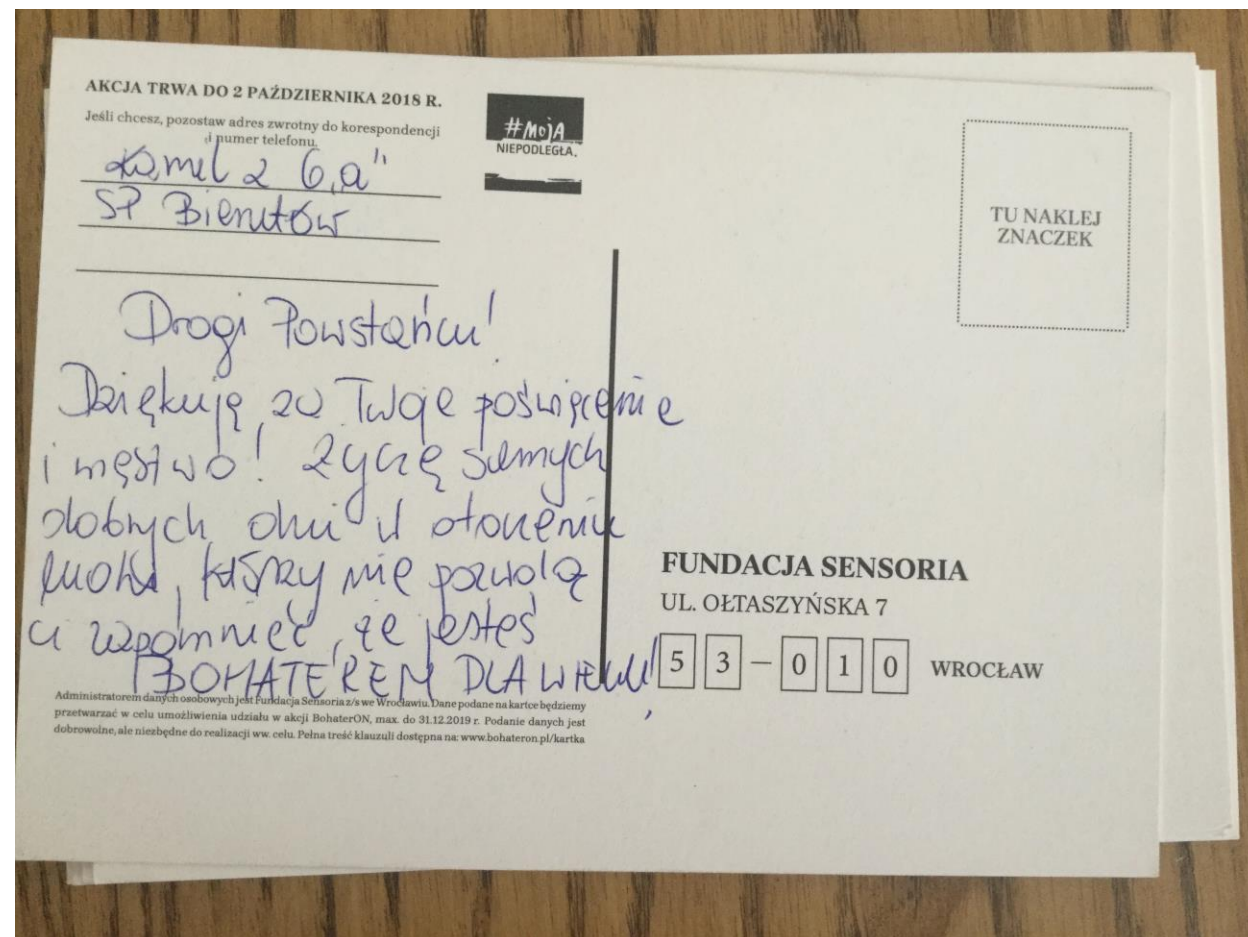 AKCJA TRWA DO 2 PAŹDZIERNIKA 2018 R.
Jeśli chcesz, pozostaw adres zwrotny do korespondencji
i numer telefonu.
Kamil z 6 „a"
SP Bierutów
#MOJA
NIEPODLEGŁA.
TU NAKLEJ
ZNACZEK
Drogi Powstańcu!
Dziękuję za Twoje poświęcenie
i męstwo! Życzę samych
dobrych dni w otoczeniu
ludzi, którzy nie pozwolą
ci zapomnieć, że jesteś
BOHATEREM DLA WIELU!
FUNDACJA SENSORIA
UL. OŁTASZYŃSKA 7
53-010 WROCŁAW
Administratorem danych osobowych jest Fundacja Sensoria z/s we Wrocławiu. Dane podane na kartce będziemy
przetwarzać w celu umożliwienia udziału w akcji BohaterON, max. do 31.12.2019 r. Podanie danych jest
dobrowolne, ale niezbędne do realizacji ww. celu. Pełna treść klauzuli dostępna na: www.bohateron.pl/kartka